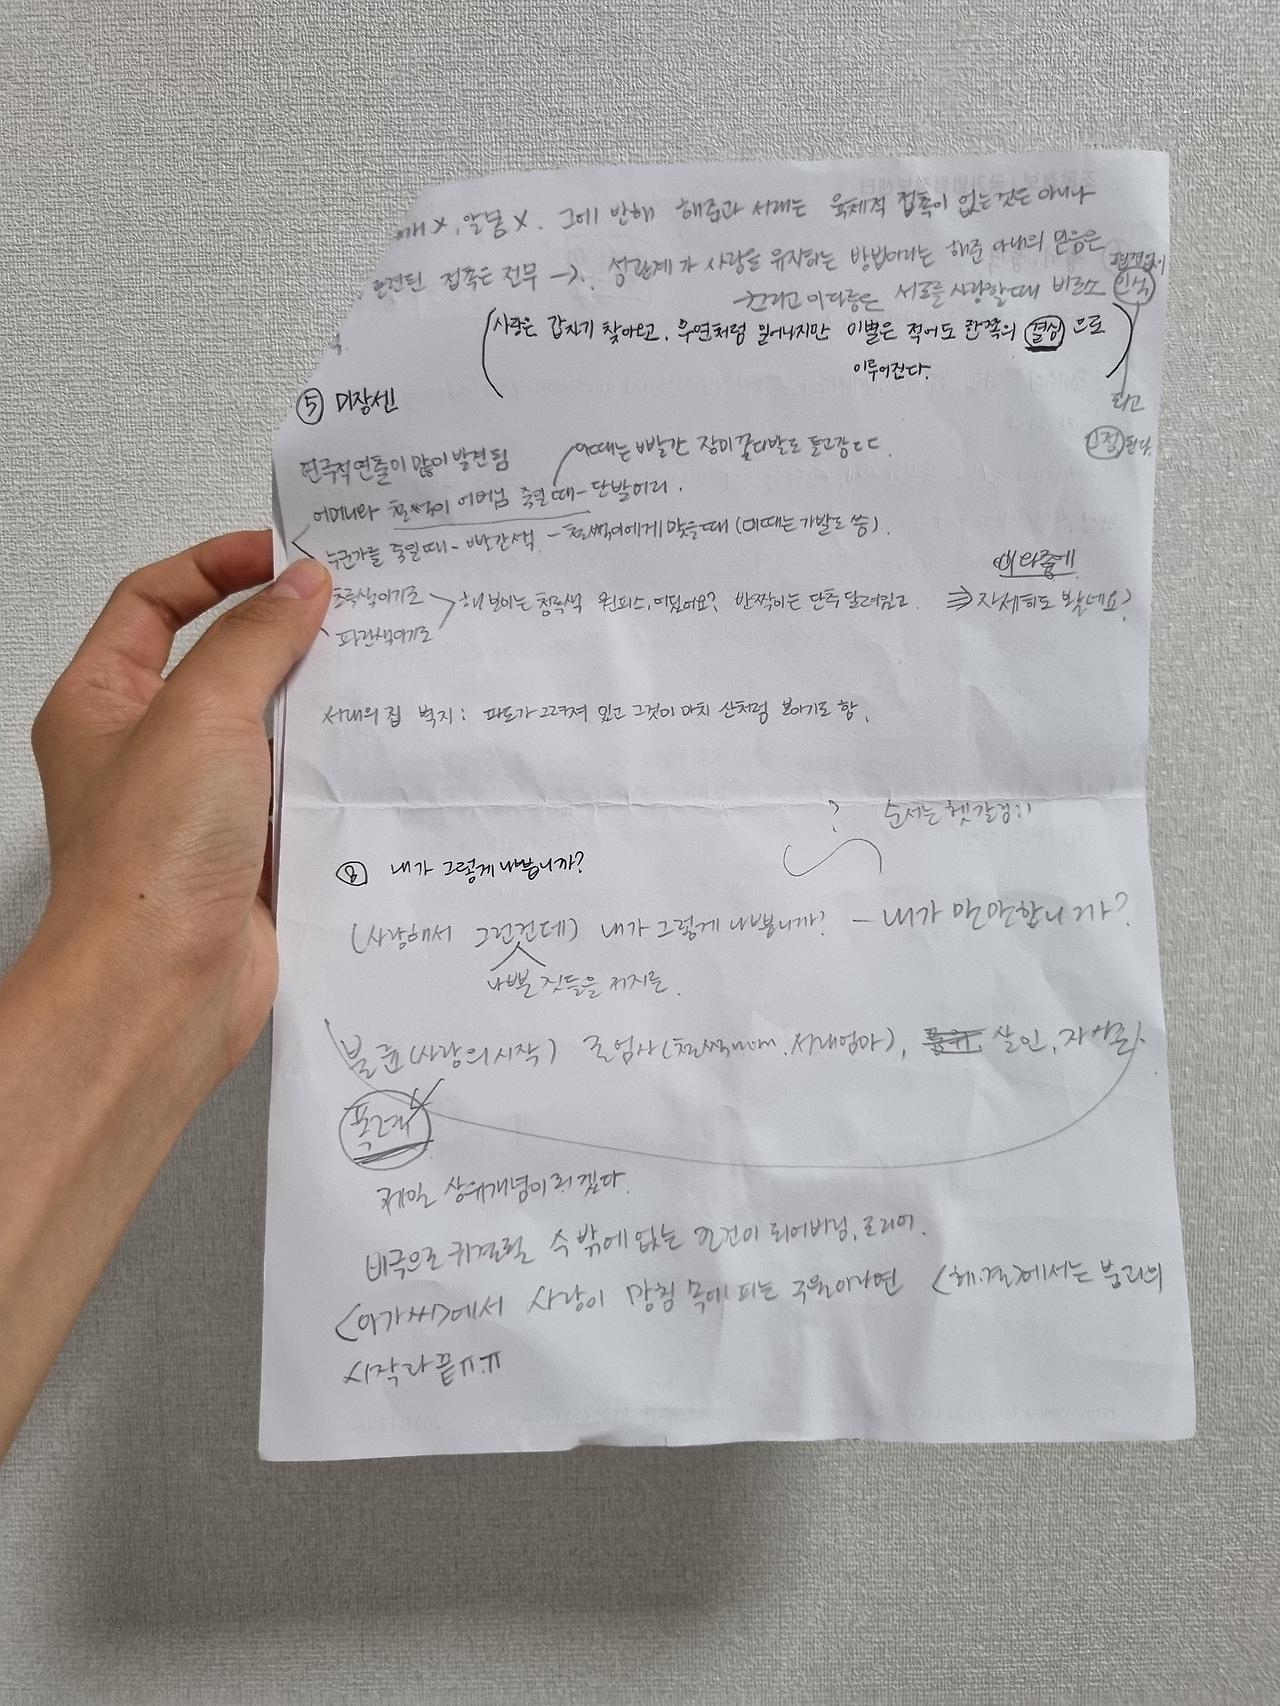 X, 알몸 X. 그에 반해 해준과 서래는 육체적 접촉이 없는것은 아니나
접촉은 전무 → 성관계가 사랑을 유지하는 방법이라는 해준 아내의 믿음은
서로를 사랑할때 비로소 인식
(사랑은 갑자기 찾아오고, 우연처럼 일어나지만 이별은 적어도 한쪽의 결심으로
이루어진다.)
되고
인정된다.
⑤ 미장센
연극적 연출이 많이 발견됨
이때는 빨간 장미꽃다발도 들고감ㄷㄷ
어머니와 철썩이 어머님 죽일때 - 단발머리.
누군가를 죽일때 - 빨간색 - 철썩이에게 맞을때 (이때는 가발도 씀).
초록색이기도
파란색이기도
해 보이는 청록색 원피스, 어딨어요? 반짝이는 단추 달려있고
와중에
⇒ 자세히도 봤네요?
서래의 집 벽지: 파도가 그려져 있고 그것이 마치 산처럼 보이기도 함.
?
순서는 헷갈림;;
⑧ 내가 그렇게 나쁩니까?
(사랑해서 그런건데) 내가 그렇게 나쁩니까? - 내가 만만합니까?
나쁜 짓들을 저지름.
불륜(사랑의 시작) 존엄사(철썩mom, 서래엄마), 살인, 자살
폭력
제일 상위개념이 되겠다.
비극으로 귀결될 수 밖에 없는 조건이 되어버림,
<아가씨>에서 사랑이 망침 목에 피는 구원이라면 <헤.결>에서는 붕괴의
시작과 끝ㅠ.ㅠ